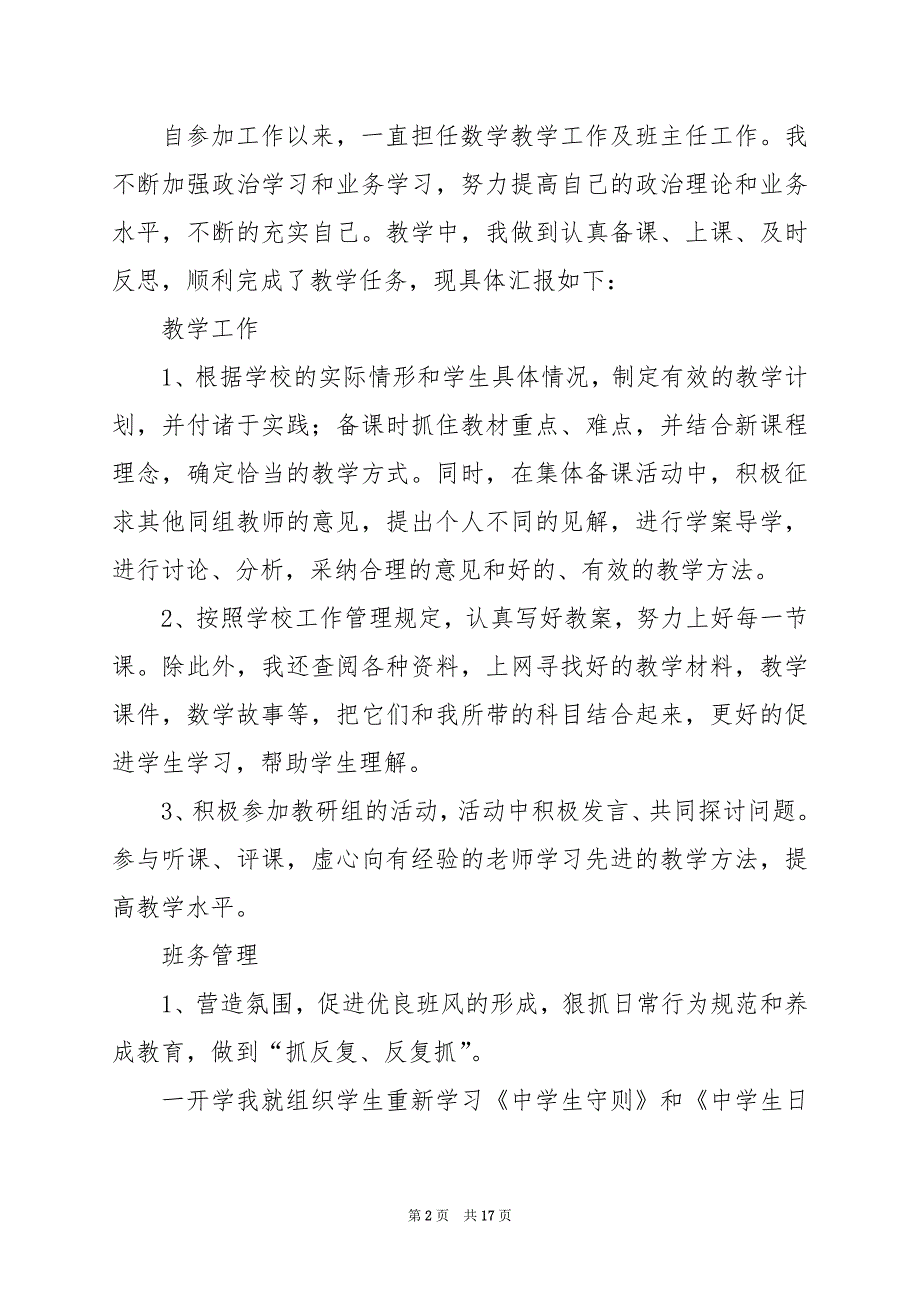 自参加工作以来，一直担任数学教学工作及班主任工作。我
不断加强政治学习和业务学习，努力提高自己的政治理论和业务
水平，不断的充实自己。教学中，我做到认真备课、上课、及时
反思，顺利完成了教学任务，现具体汇报如下：
教学工作
1、根据学校的实际情形和学生具体情况，制定有效的教学计
划，并付诸于实践；备课时抓住教材重点、难点，并结合新课程
理念，确定恰当的教学方式。同时，在集体备课活动中，积极征
求其他同组教师的意见，提出个人不同的见解，进行学案导学，
进行讨论、分析，采纳合理的意见和好的、有效的教学方法。
2、按照学校工作管理规定，认真写好教案，努力上好每一节
课。除此外，我还查阅各种资料，上网寻找好的教学材料，教学
课件，数学故事等，把它们和我所带的科目结合起来，更好的促
进学生学习，帮助学生理解。
3、积极参加教研组的活动，活动中积极发言、共同探讨问题。
参与听课、评课，虚心向有经验的老师学习先进的教学方法，提
高教学水平。
班务管理
1、营造氛围，促进优良班风的形成，狠抓日常行为规范和养
成教育，做到“抓反复、反复抓”。
一开学我就组织学生重新学习《中学生守则》和《中学生日
第 2 页 共 17 页